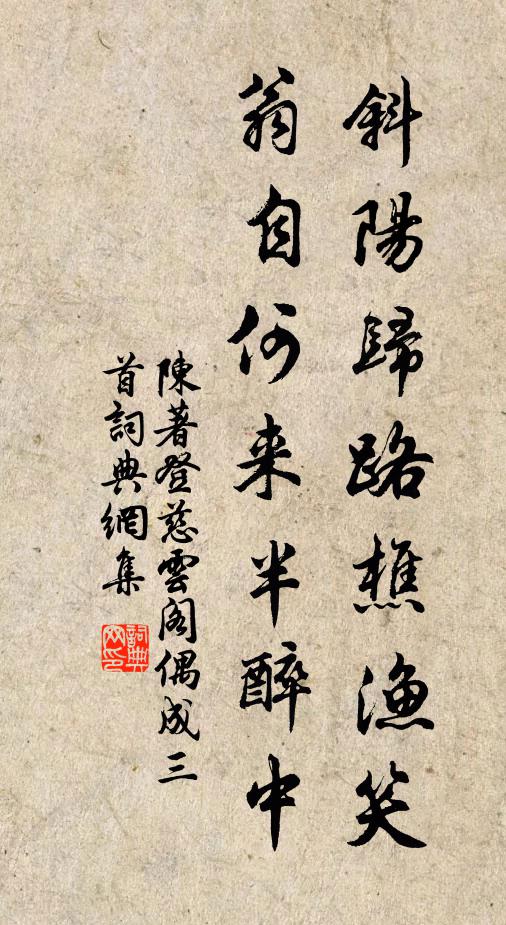 斜陽歸路樵漁笑
翁自何来半醉中
陳著登慈雲閣偶成三
首詞典網集
詞典网印